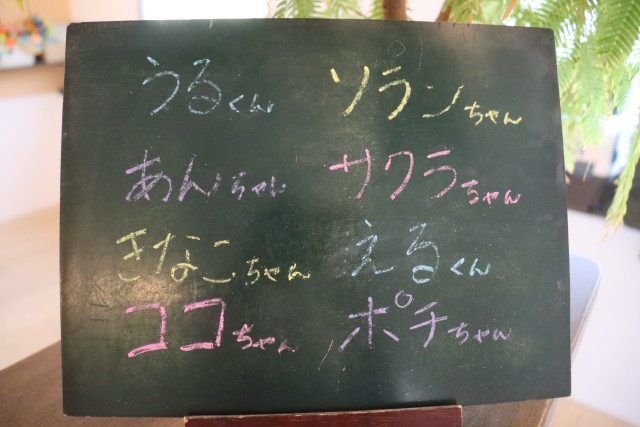 うるくん ソランちゃん
あんちゃん サクラちゃん
きなこちゃん えるくん
ココちゃん ポチちゃん